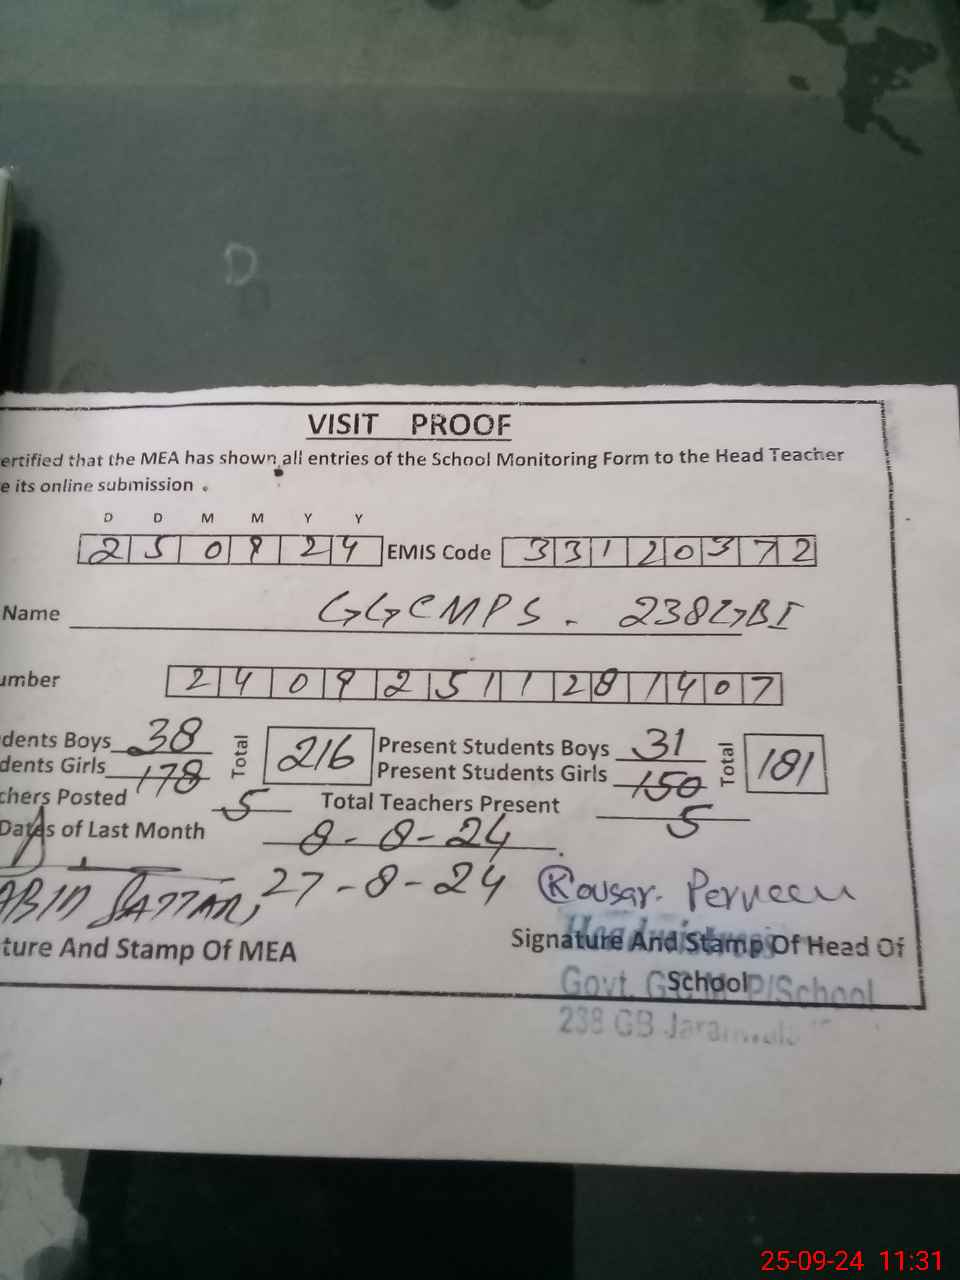 VISIT PROOF
ertified that the MEA has shown all entries of the School Monitoring Form to the Head Teacher
e its online submission .
D D M M Y Y
2 5 0 9 2 4 EMIS Code 3 3 1 2 0 3 7 2
Name GGCMPS. 238GBI
umber 2 4 0 9 2 5 1 1 2 8 1 4 0 7
dents Boys 38 Total 216 Present Students Boys 31 Total 181
dents Girls 178 Present Students Girls 150
chers Posted 5 Total Teachers Present 5
Dates of Last Month 8-8-24
ABID SATTAR, 27-8-24 Kousar. Perveen
ture And Stamp Of MEA Signature And Stamp Of Head Of
School
Headmistress
Govt. P/School
238 GB Jaranwala
D
25-09-24 11:31